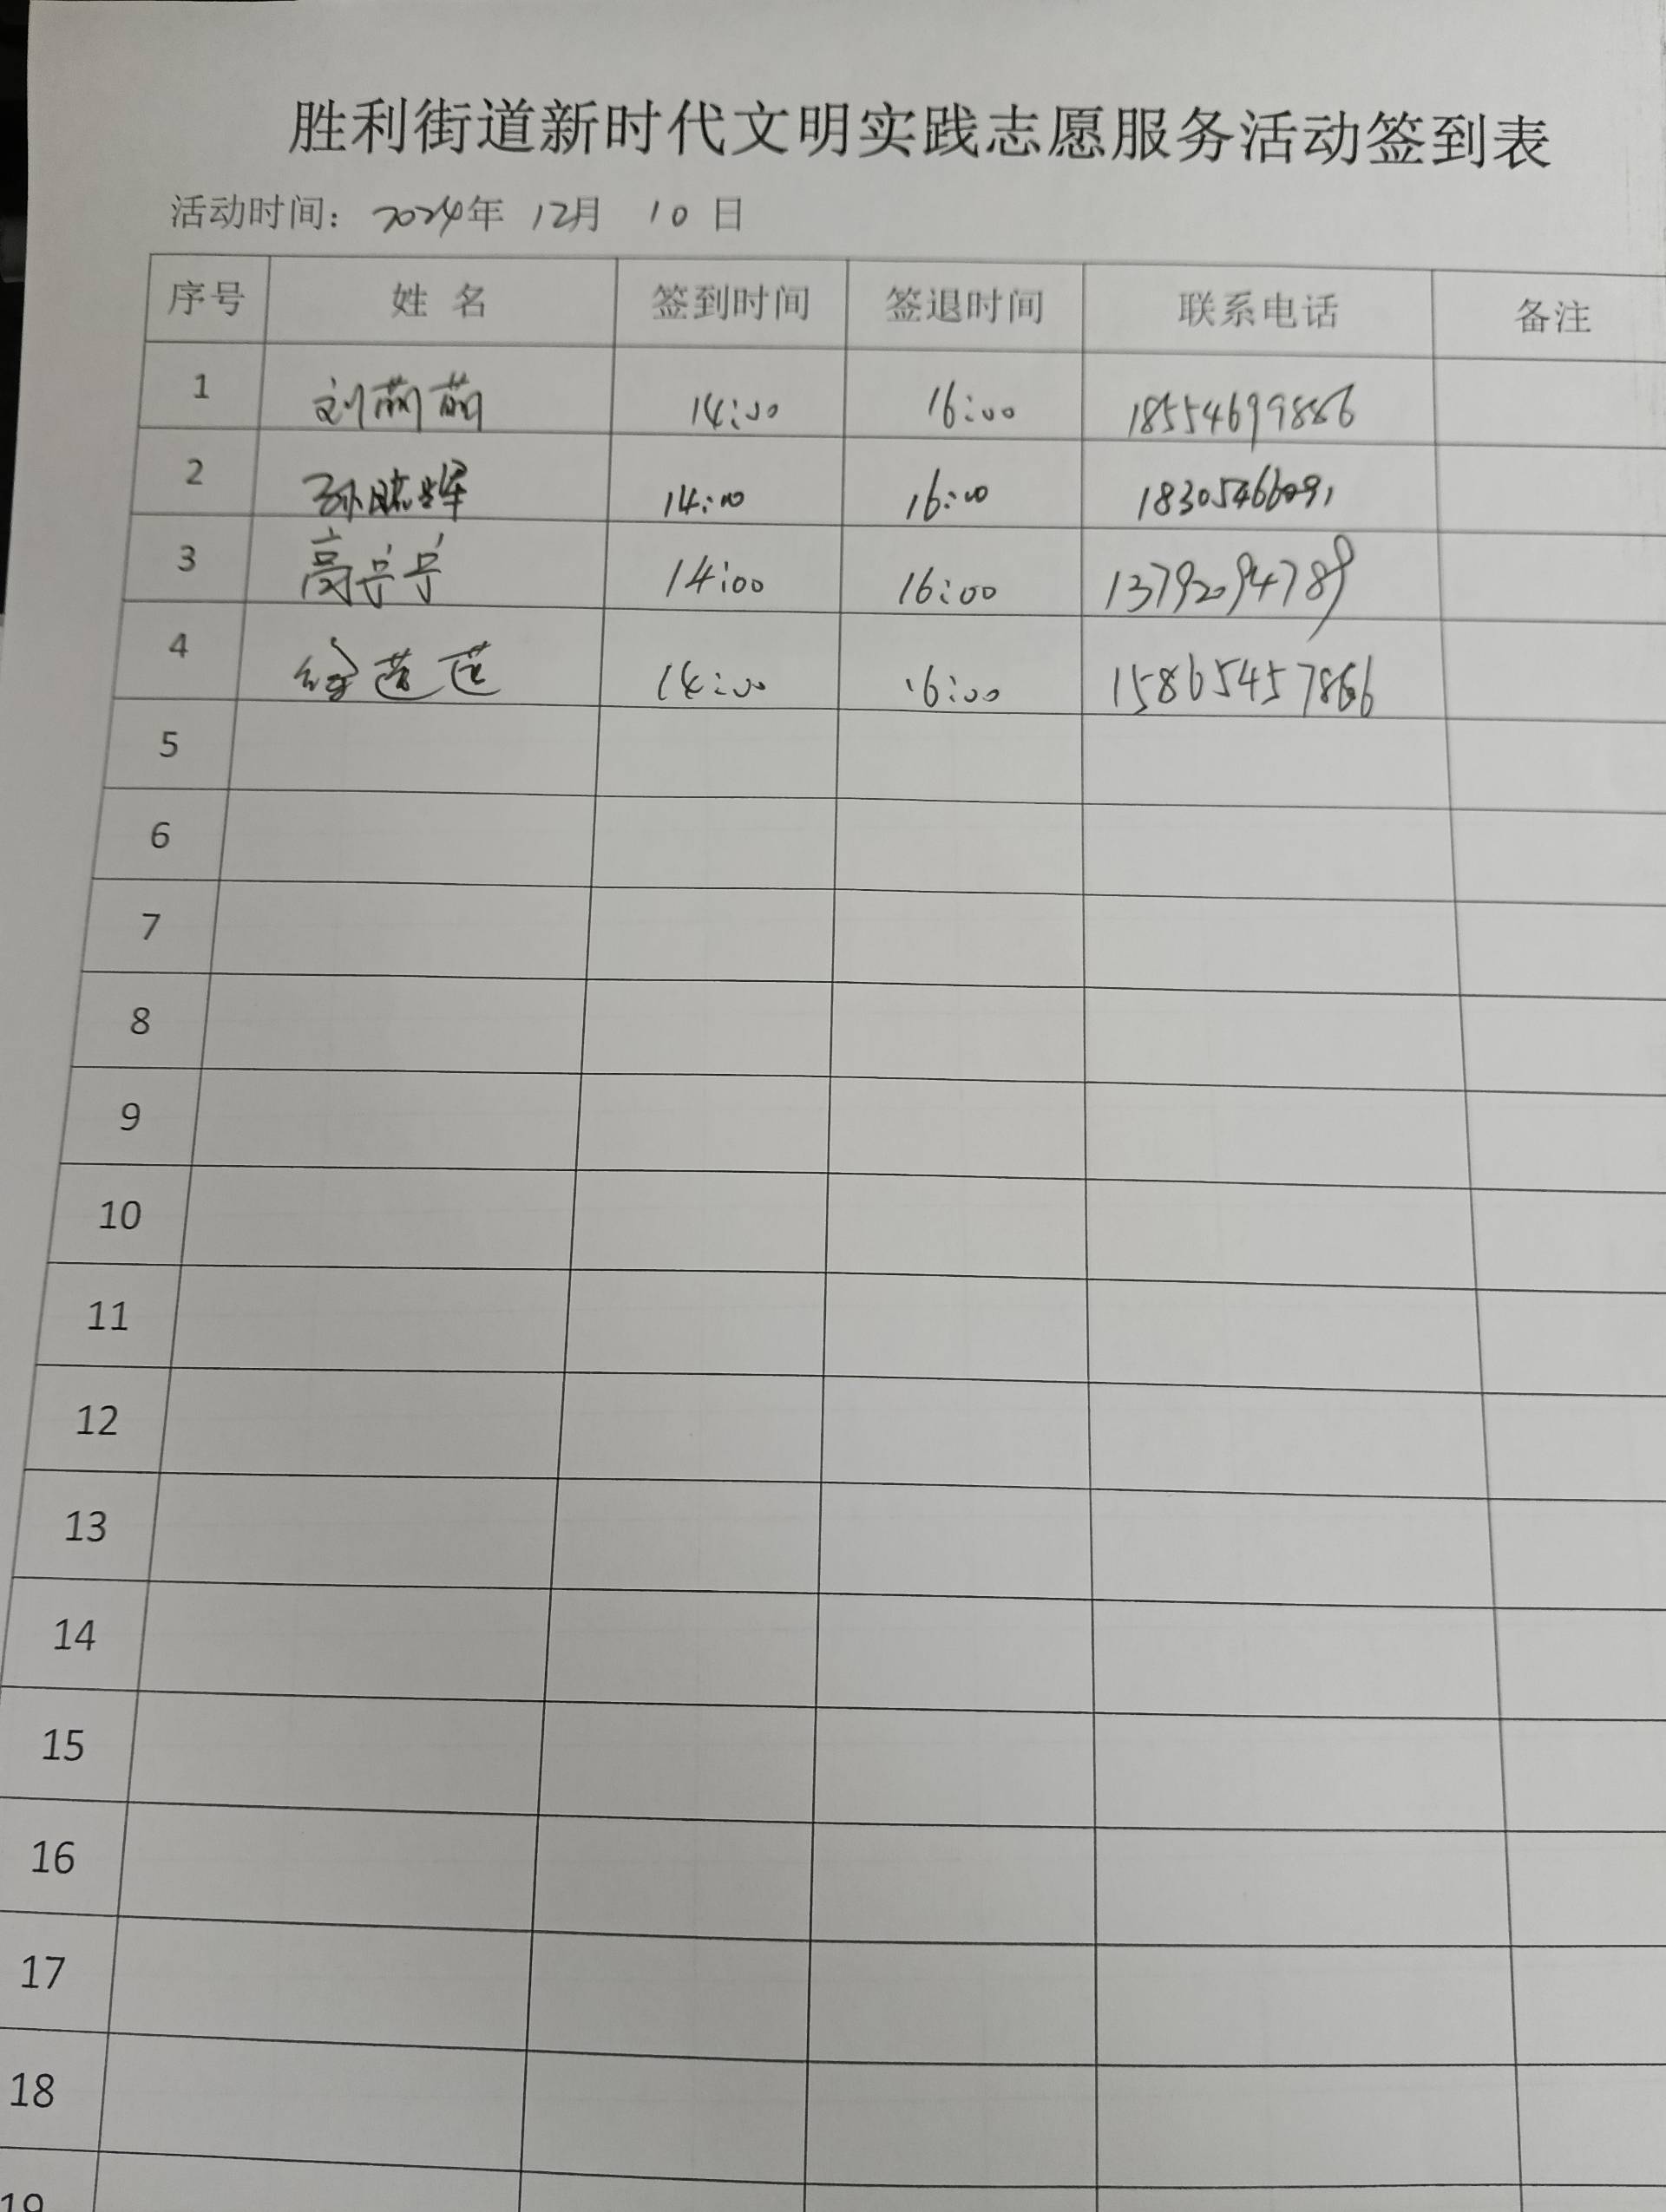 胜利街道新时代文明实践志愿服务活动签到表
活动时间: 2024年 12月 10 日
序号 姓 名 签到时间 签退时间 联系电话 备注
1 刘萌萌 14:00 16:00 18554699886
2 孙晓辉 14:00 16:00 18305466091
3 高 14:00 16:00 13792094789
4 莲莲 14:00 16:00 15865457866
5
6
7
8
9
10
11
12
13
14
15
16
17
18
19